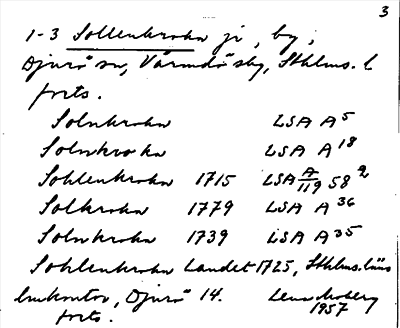 3
1-3 Sollenkroka ji, by,
Djurö sn, Värmdö sky, Sthlms. l
forts.
Solnkroka LSA A 5
Solnkroka LSA A 18
Sohlenkroka 1715 LSA A/119 58 2
Solkroka 1779 LSA A 36
Solnkroka 1739 LSA A 35
Sohlenkroka Landet 1725, Sthlms. läns
lmkontor, Djurö 14. Lena Moberg
forts. 1957